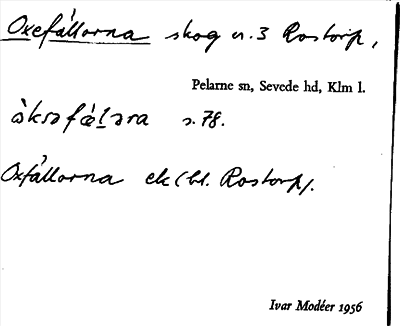 Oxefållorna skog n. 3 Rostorp,
Pelarne sn, Sevede hd, Klm l.
òksəfǽləra s. 78.
Oxfållorna ek (bl. Rostorp).
Ivar Modéer 1956